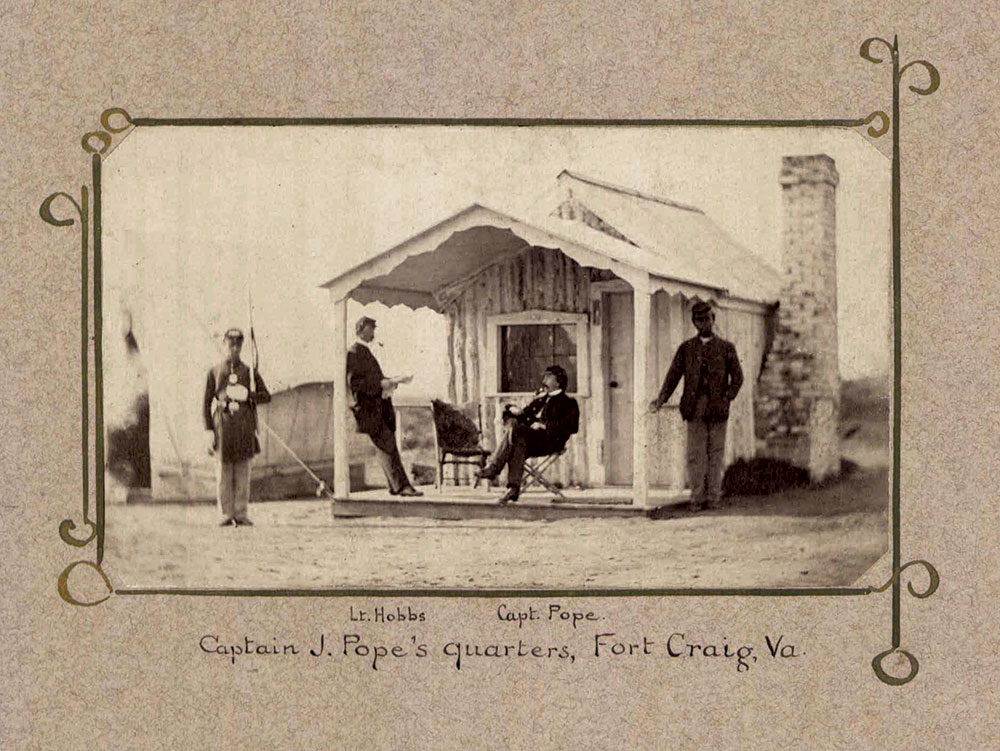 Lt. Hobbs Capt. Pope.
Captain J. Pope's quarters, Fort Craig, Va.